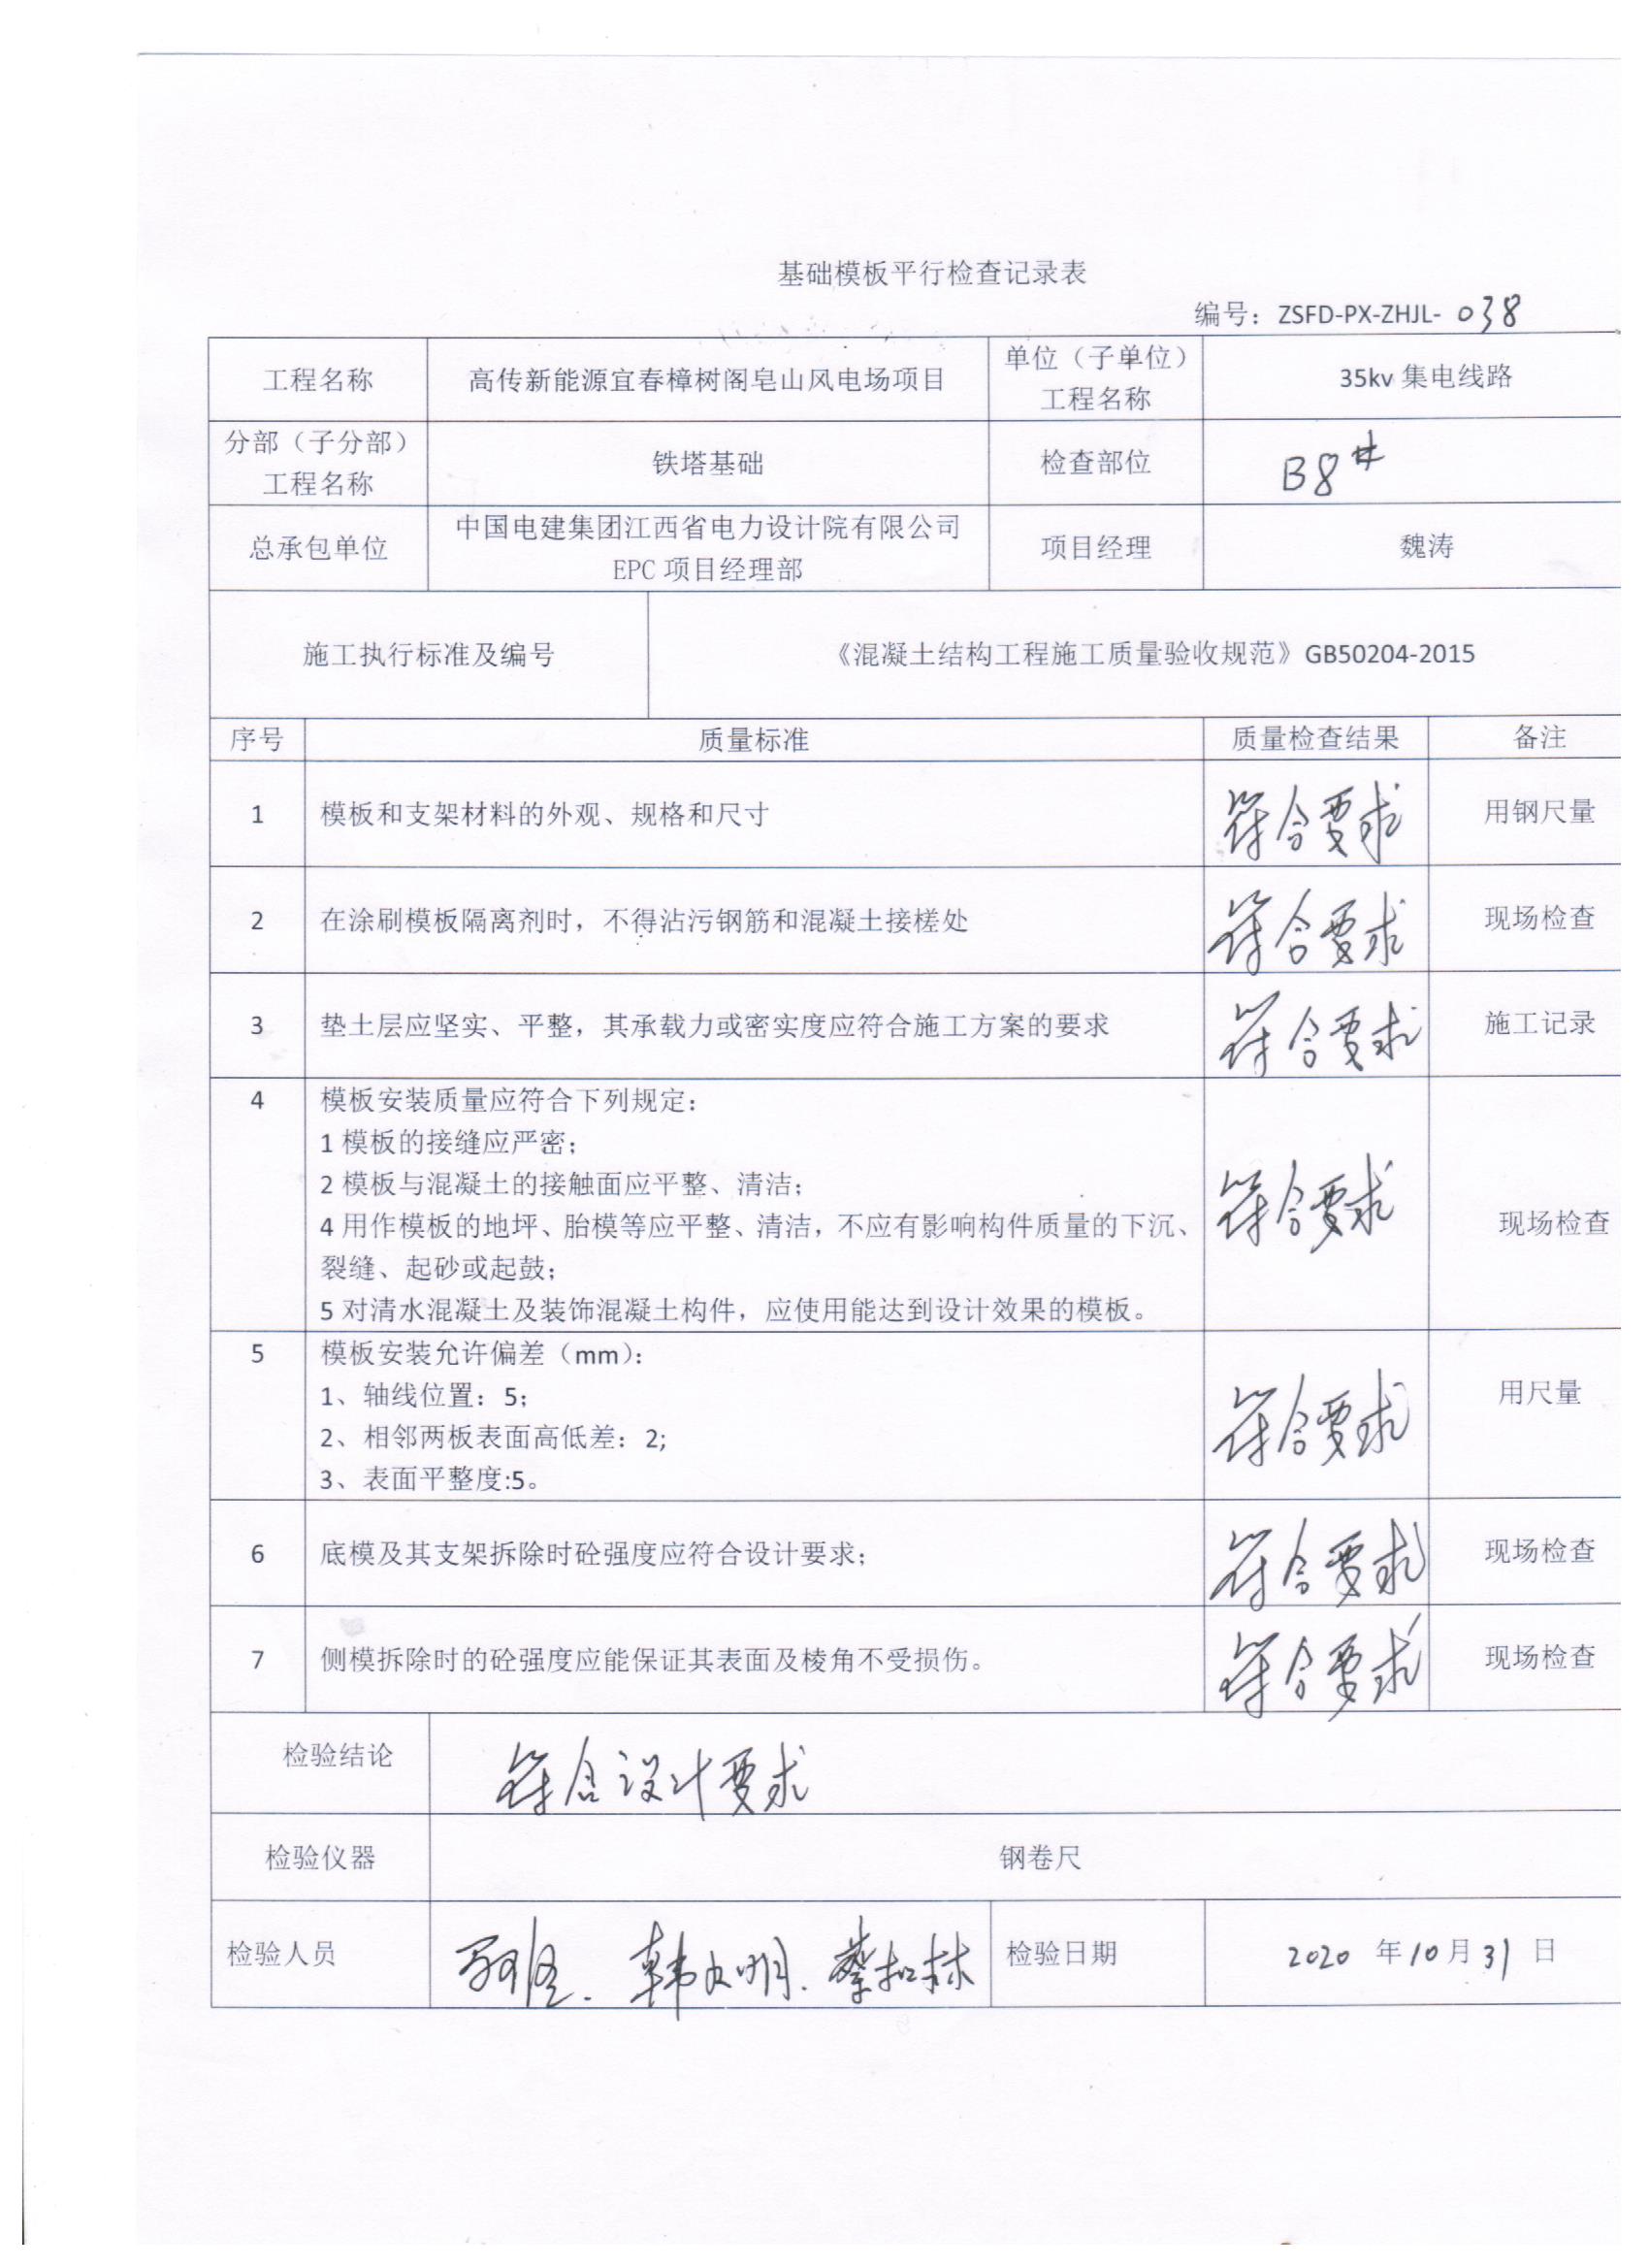 基础模板平行检查记录表
编号：ZSFD-PX-ZHJL-038
工程名称 高传新能源宜春樟树阁皂山风电场项目 单位（子单位）工程名称 35kv 集电线路
分部（子分部）工程名称 铁塔基础 检查部位 B8#
总承包单位 中国电建集团江西省电力设计院有限公司 EPC 项目经理部 项目经理 魏涛
施工执行标准及编号 《混凝土结构工程施工质量验收规范》GB50204-2015
序号 质量标准 质量检查结果 备注
1 模板和支架材料的外观、规格和尺寸 符合要求 用钢尺量
2 在涂刷模板隔离剂时，不得沾污钢筋和混凝土接槎处 符合要求 现场检查
3 垫土层应坚实、平整，其承载力或密实度应符合施工方案的要求 符合要求 施工记录
4 模板安装质量应符合下列规定：
1 模板的接缝应严密；
2 模板与混凝土的接触面应平整、清洁；
4 用作模板的地坪、胎模等应平整、清洁，不应有影响构件质量的下沉、
裂缝、起砂或起鼓；
5 对清水混凝土及装饰混凝土构件，应使用能达到设计效果的模板。
符合要求 现场检查
5 模板安装允许偏差（mm）：
1、轴线位置：5；
2、相邻两板表面高低差：2;
3、表面平整度:5。
符合要求 用尺量
6 底模及其支架拆除时砼强度应符合设计要求； 符合要求 现场检查
7 侧模拆除时的砼强度应能保证其表面及棱角不受损伤。 符合要求 现场检查
检验结论 符合设计要求
检验仪器 钢卷尺
检验人员 检验日期 2020 年 10 月 31 日